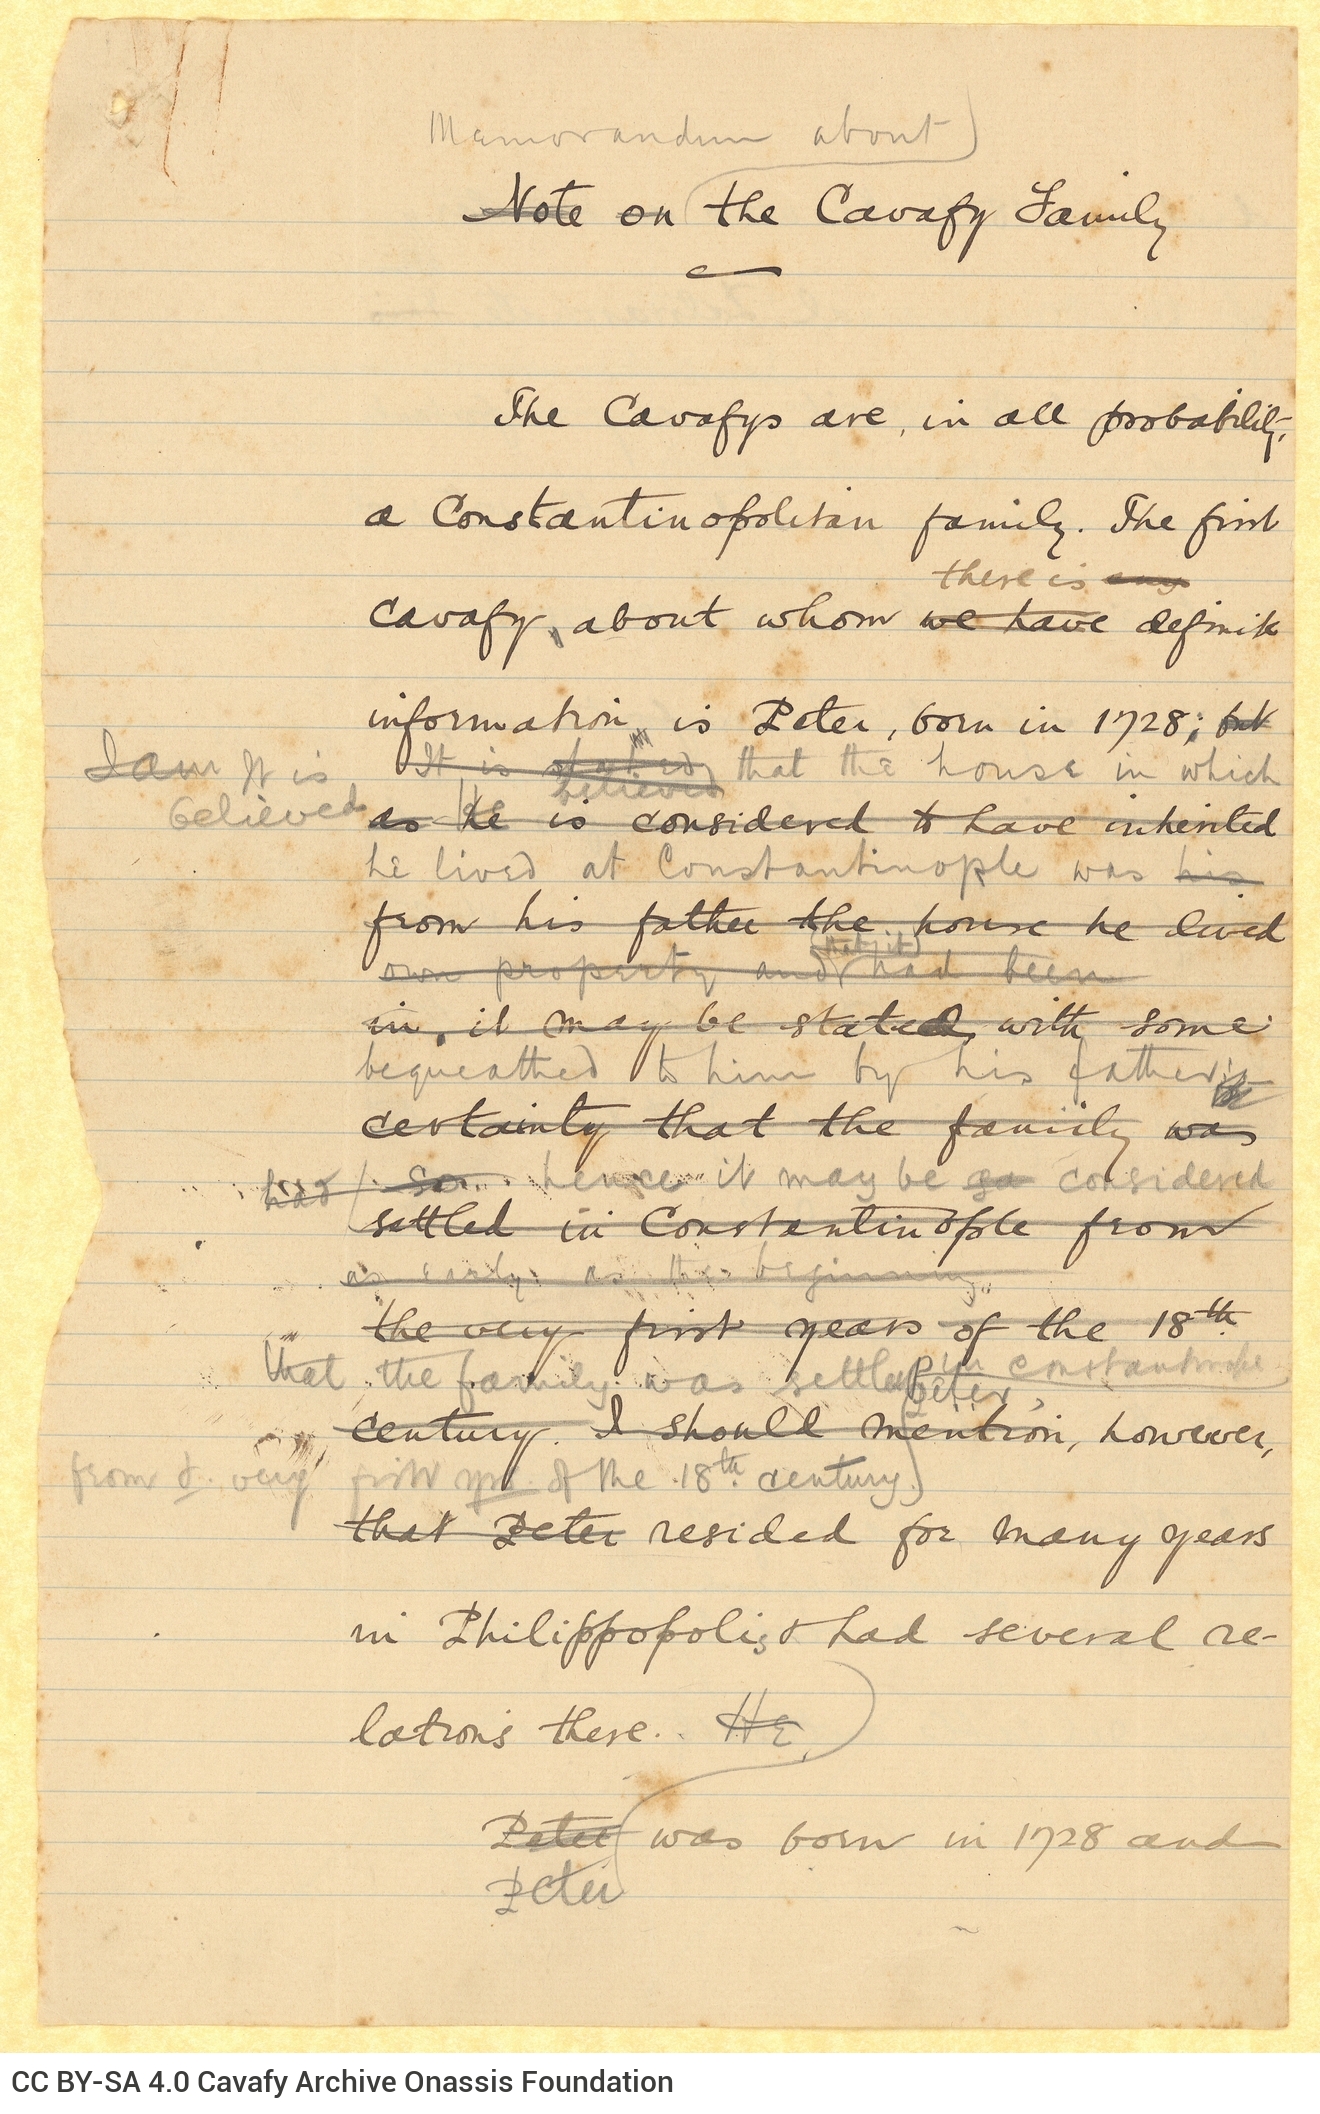 Memorandum about
Note on the Cavafy Family
The Cavafys are, in all probability,
a Constantinopolitan family. The first
there is any
Cavafy, about whom we have definite
information, is Peter, born in 1728; but
I am It is It is stated that the house in which
believed He believed
as he is considered to have inherited
he lived at Constantinople was his
from his father the house he lived
that it
own property and had been
in, it may be stated, with some
bequeathed to him by his father;
certainty that the family was
had So hence it may be so considered
settled in Constantinople from
as early as the beginning
the very first years of the 18th
that the family was settled in Constantinople
Peter,
century. I should mention, however,
from & very first yrs of the 18th century
that Peter resided for many years
in Philippopolis & had several re-
lations there. He
Peter was born in 1728 and
Peter
CC BY-SA 4.0 Cavafy Archive Onassis Foundation